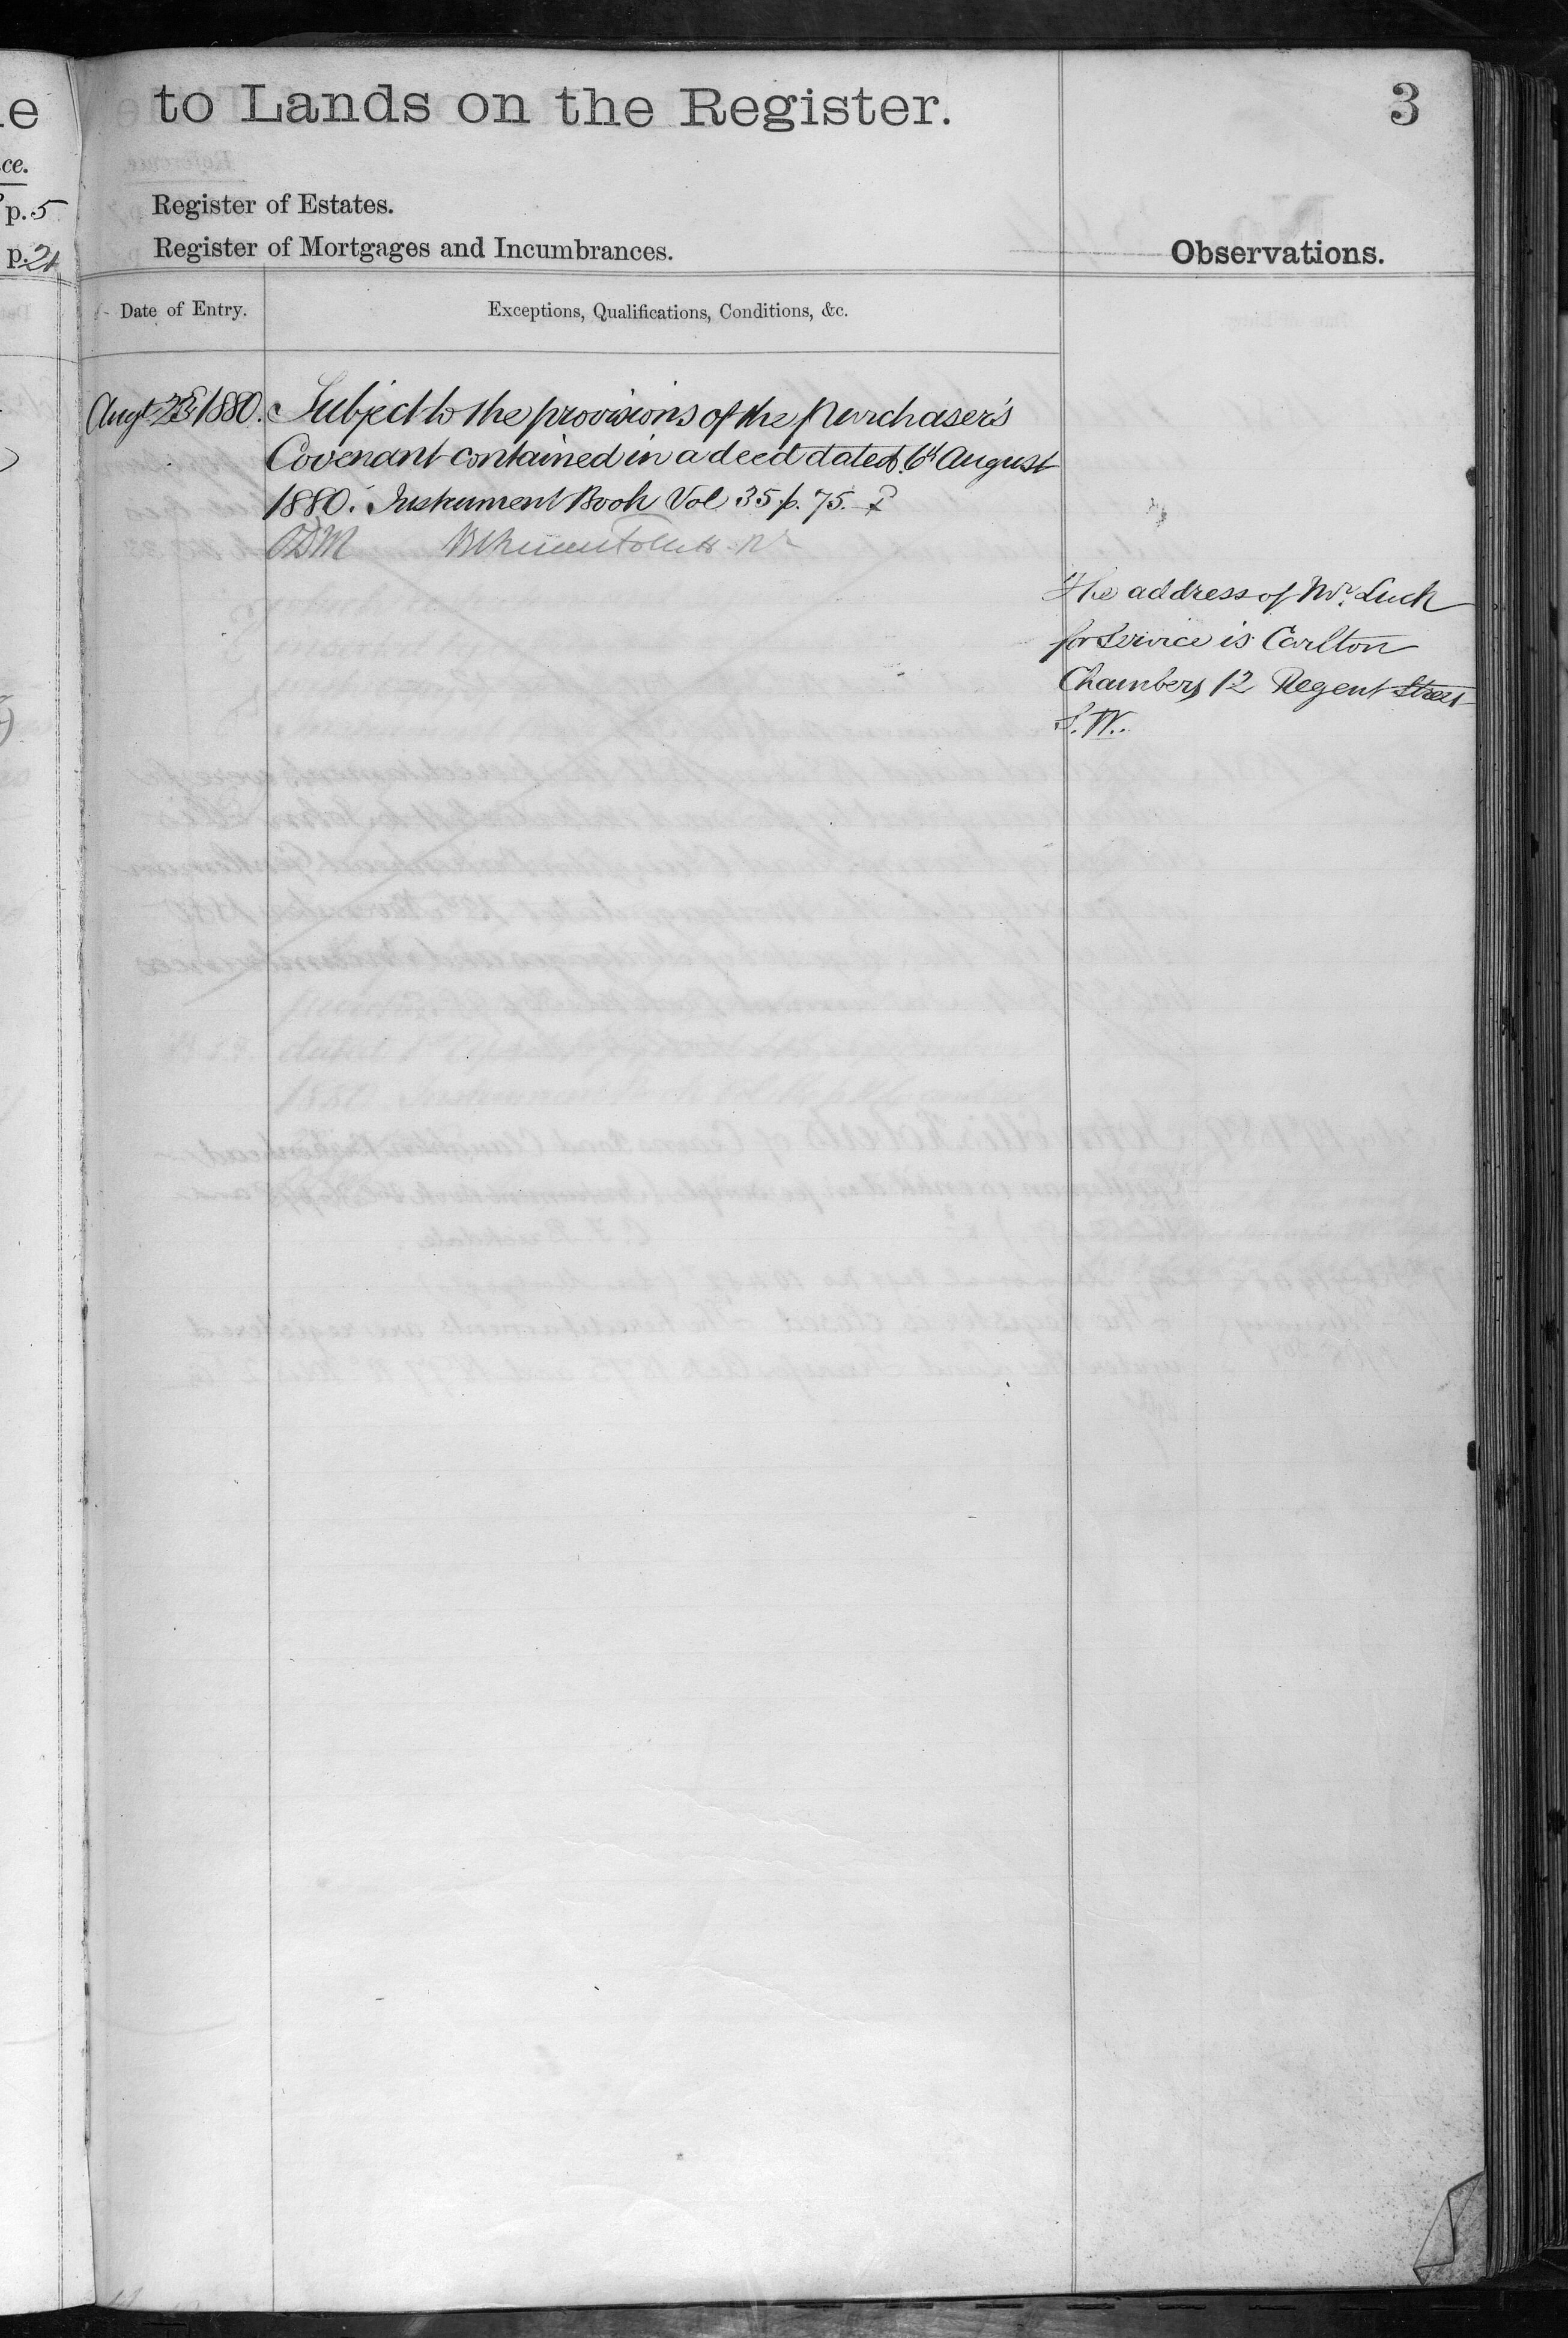 to Lands on the Register.
3
ce.
p. 5
p. 21
Register of Estates.
Register of Mortgages and Incumbrances.
Observations.
Date of Entry.
Exceptions, Qualifications, Conditions, &c.
Augt 1880.
Subject to the provisions of the purchaser's
Covenant contained in a deed dated 6th August
1880. Instrument Book Vol 35 p. 75.
The address of Mr. Luck
for Service is Carlton
Chambers 12 Regent Street
S.W.